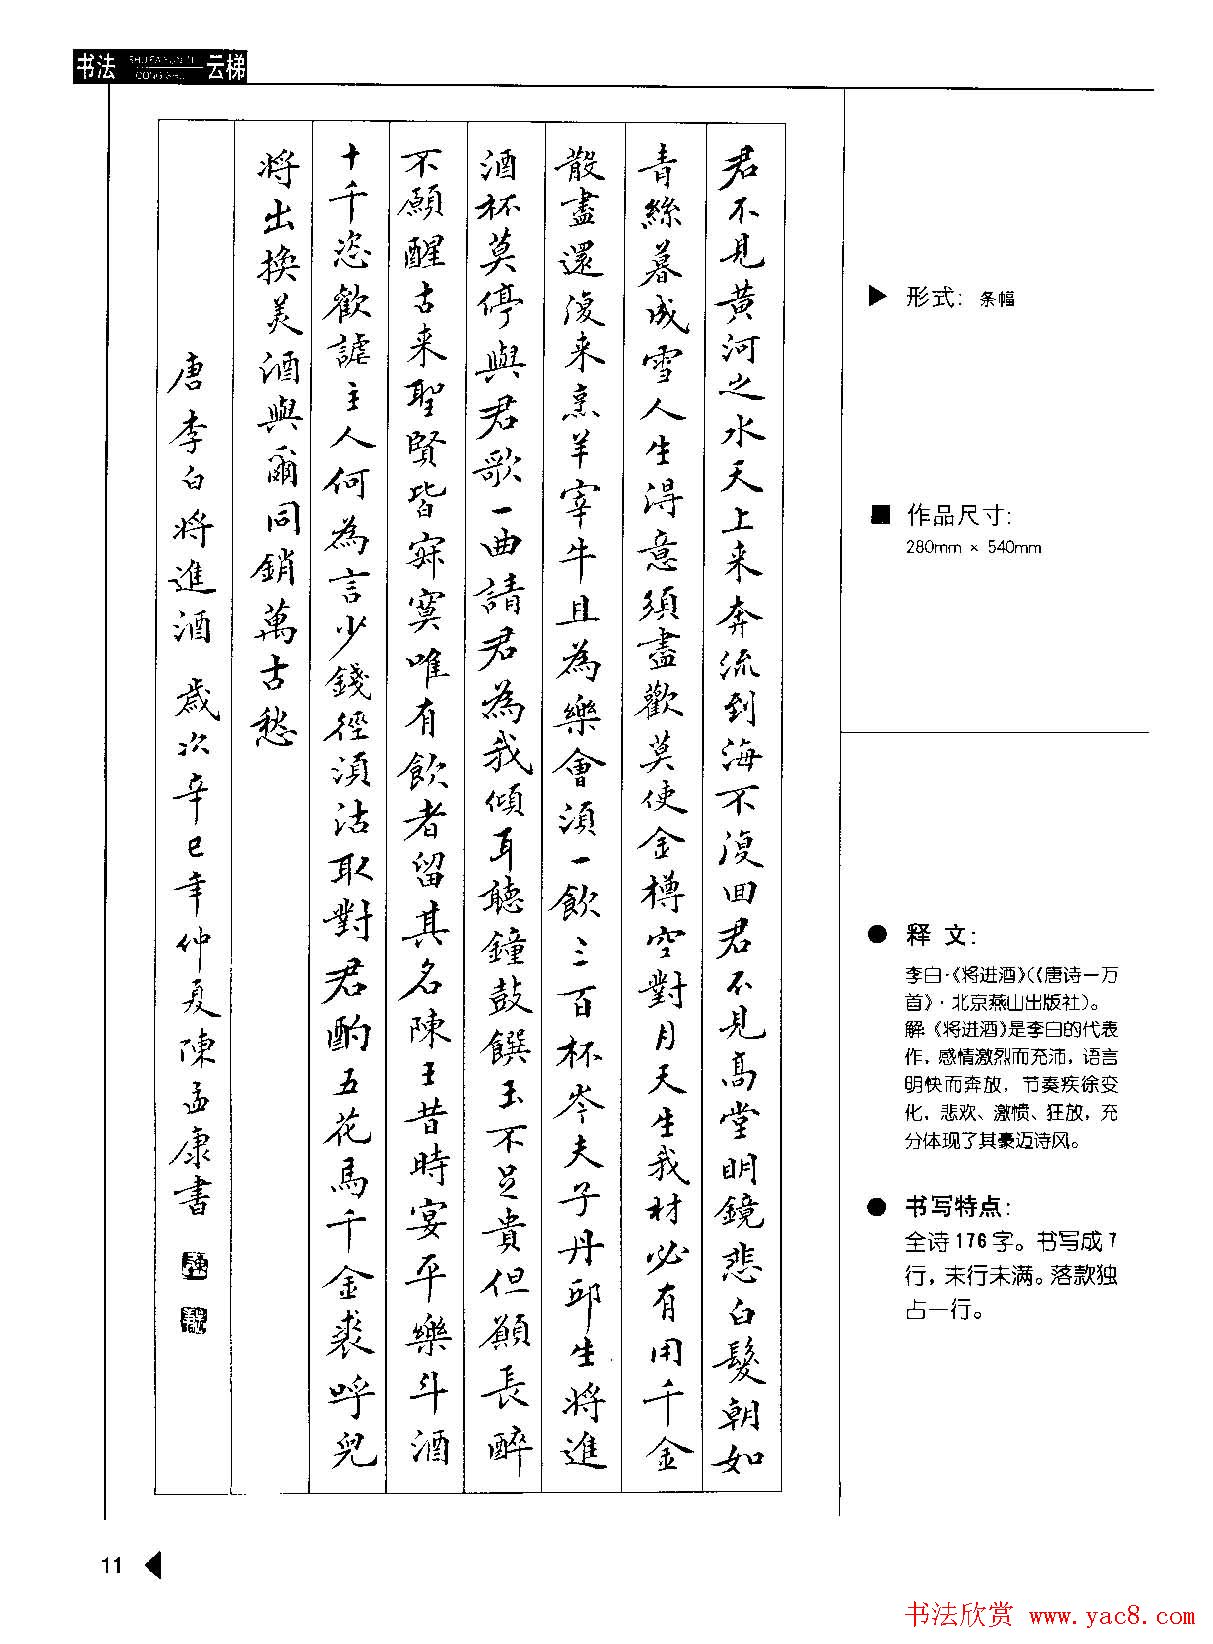 书法 云梯
SHU FA YUN TI
CONG SHU
君不見黃河之水天上来奔流到海不復回君不見高堂明鏡悲白髮朝如
青絲暮成雪人生得意須盡歡莫使金樽空對月天生我材必有用千金
散盡還復来烹羊宰牛且為樂會須一飲三百杯岑夫子丹邱生將進
酒杯莫停與君歌一曲請君為我傾耳聽鐘鼓饌玉不足貴但願長醉
不願醒古来聖賢皆寂寞唯有飲者留其名陳王昔時宴平樂斗酒
十千恣歡謔主人何為言少錢徑須沽取對君酌五花馬千金裘呼兒
將出換美酒與爾同銷萬古愁
唐李白將進酒 歲次辛巳年仲夏陳孟康書
▶ 形式: 条幅
■ 作品尺寸:
280mm × 540mm
● 释 文:
李白·《将进酒》(《唐诗一万
首》·北京燕山出版社)。
解《将进酒》是李白的代表
作，感情激烈而充沛，语言
明快而奔放，节奏疾徐变
化，悲欢、激愤、狂放，充
分体现了其豪迈诗风。
● 书写特点:
全诗176字。书写成7
行，末行未满。落款独
占一行。
11
书法欣赏 www.yac8.com